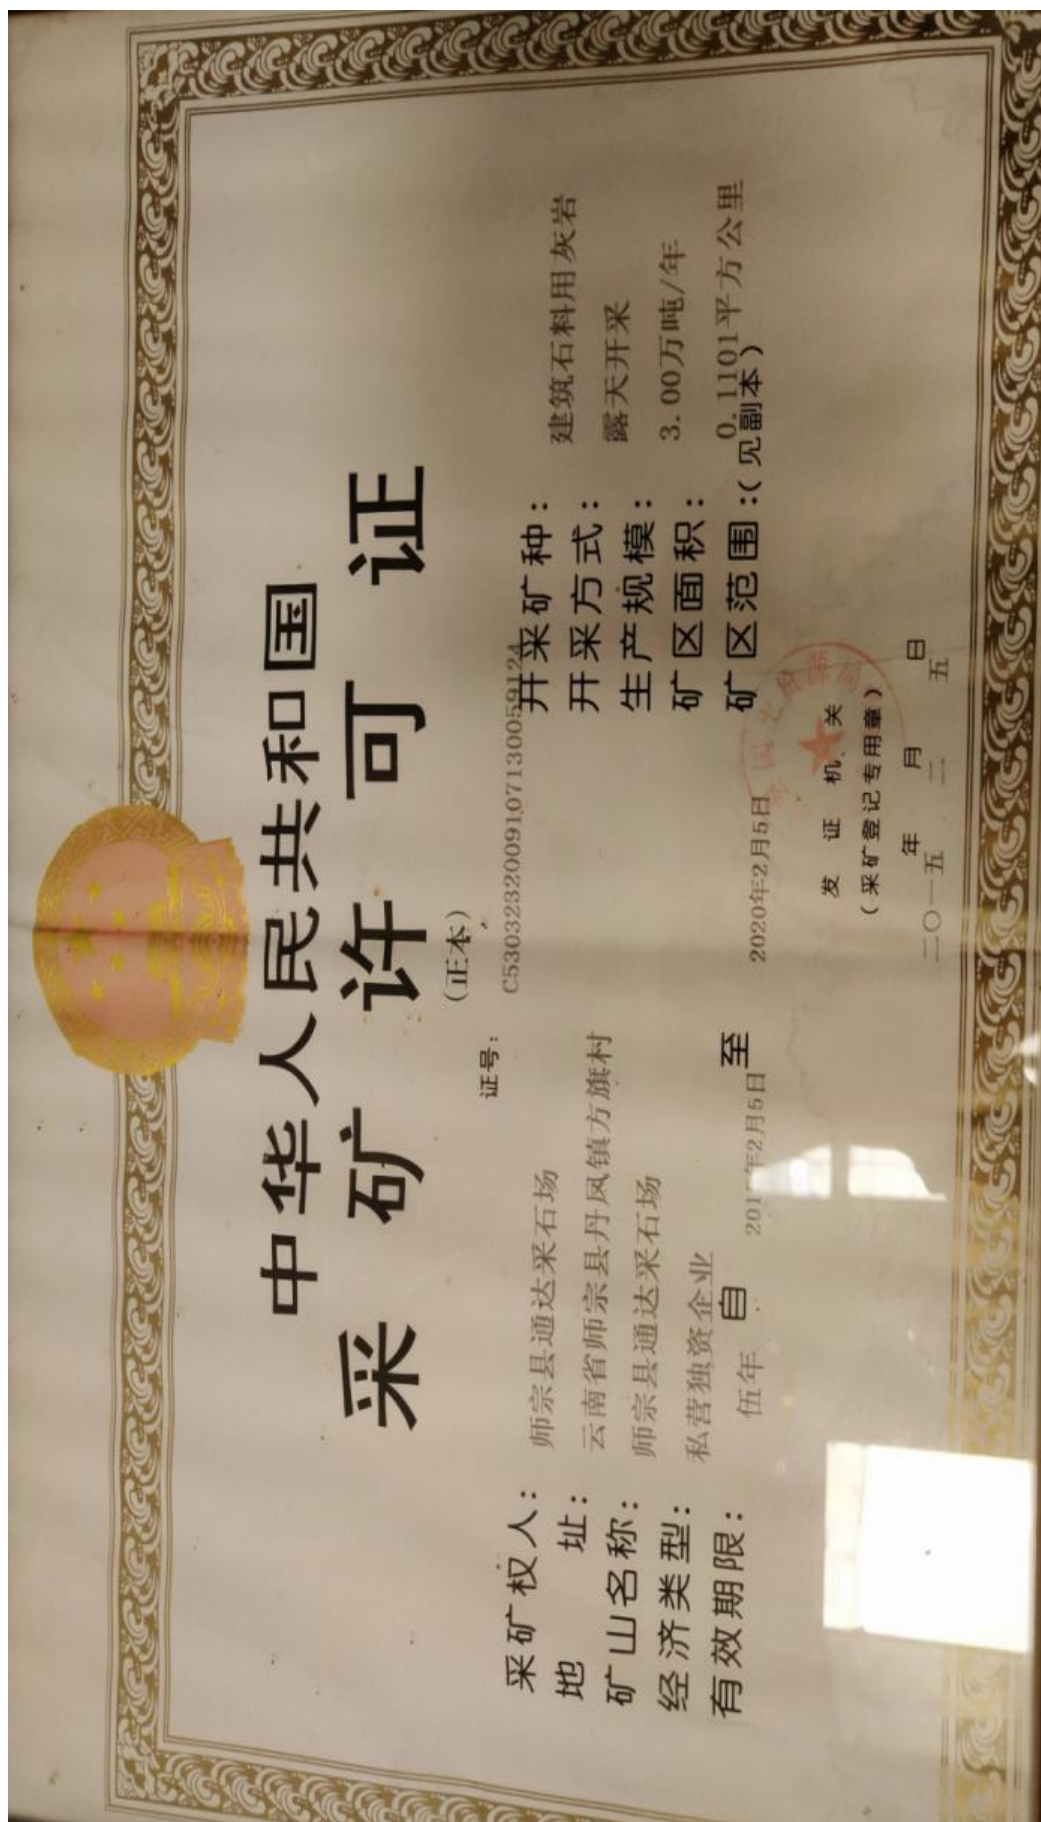 中华人民共和国
采矿许可证
(正本)
证号:
C5303232009107130059124
采矿权人: 师宗县通达采石场
地 址: 云南省师宗县丹凤镇方旗村
矿山名称: 师宗县通达采石场
经济类型: 私营独资企业
有效期限: 伍年 自 201 年2月5日 至 2020年2月5日
开采矿种: 建筑石料用灰岩
开采方式: 露天开采
生产规模: 3.00万吨/年
矿区面积: 0.1101平方公里
矿区范围:(见副本)
发 证 机 关
(采矿登记专用章)
年 月 日
二〇一五 二 五